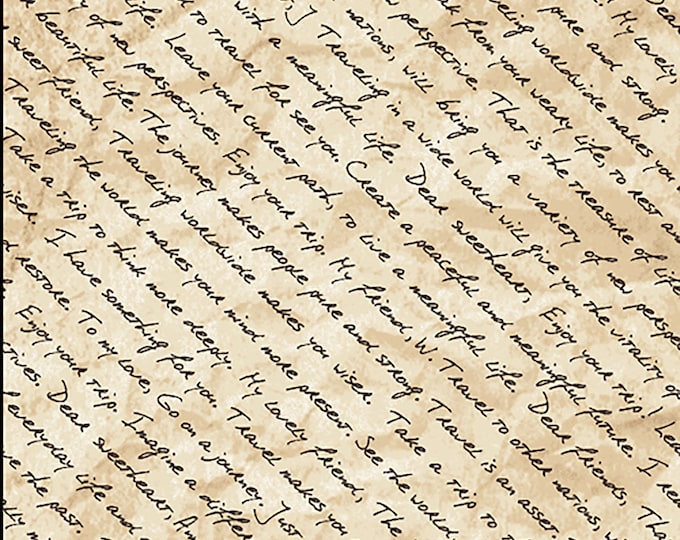 Dear
! My lovely,
pure and strong.
eling worldwide makes you
from your weary life, to rest and
ew perspective. That is the treasure of life
nations, will bring you a variety of new perspec
t. I Traveling in a wide world will give you the vitality of
with a meaningful life. Dear sweetheart, Enjoy your trip. ! Lea
d to travel for see you. Create a peaceful and meaningful future. I re
Leave your current path, to live a meaningful life. Dear friends, Tha
y of new perspectives. Enjoy your trip. My friend, W. Travel to other nations, wi
r beautiful life. The journey makes people pure and strong. Travel is an asset. T
sweet friend, Traveling worldwide makes you wiser. Take a trip to t
Traveling the world makes your mind more present. See the world,
Take a trip to think more deeply. My lovely friend, The
wiser. I have something for you. Travel makes you
d restore. To my love, Go on a journey. Just
Enjoy your trip. Imagine a differ
ctives. Dear sweetheart, An
f everyday life and
ve the past. T
ally m